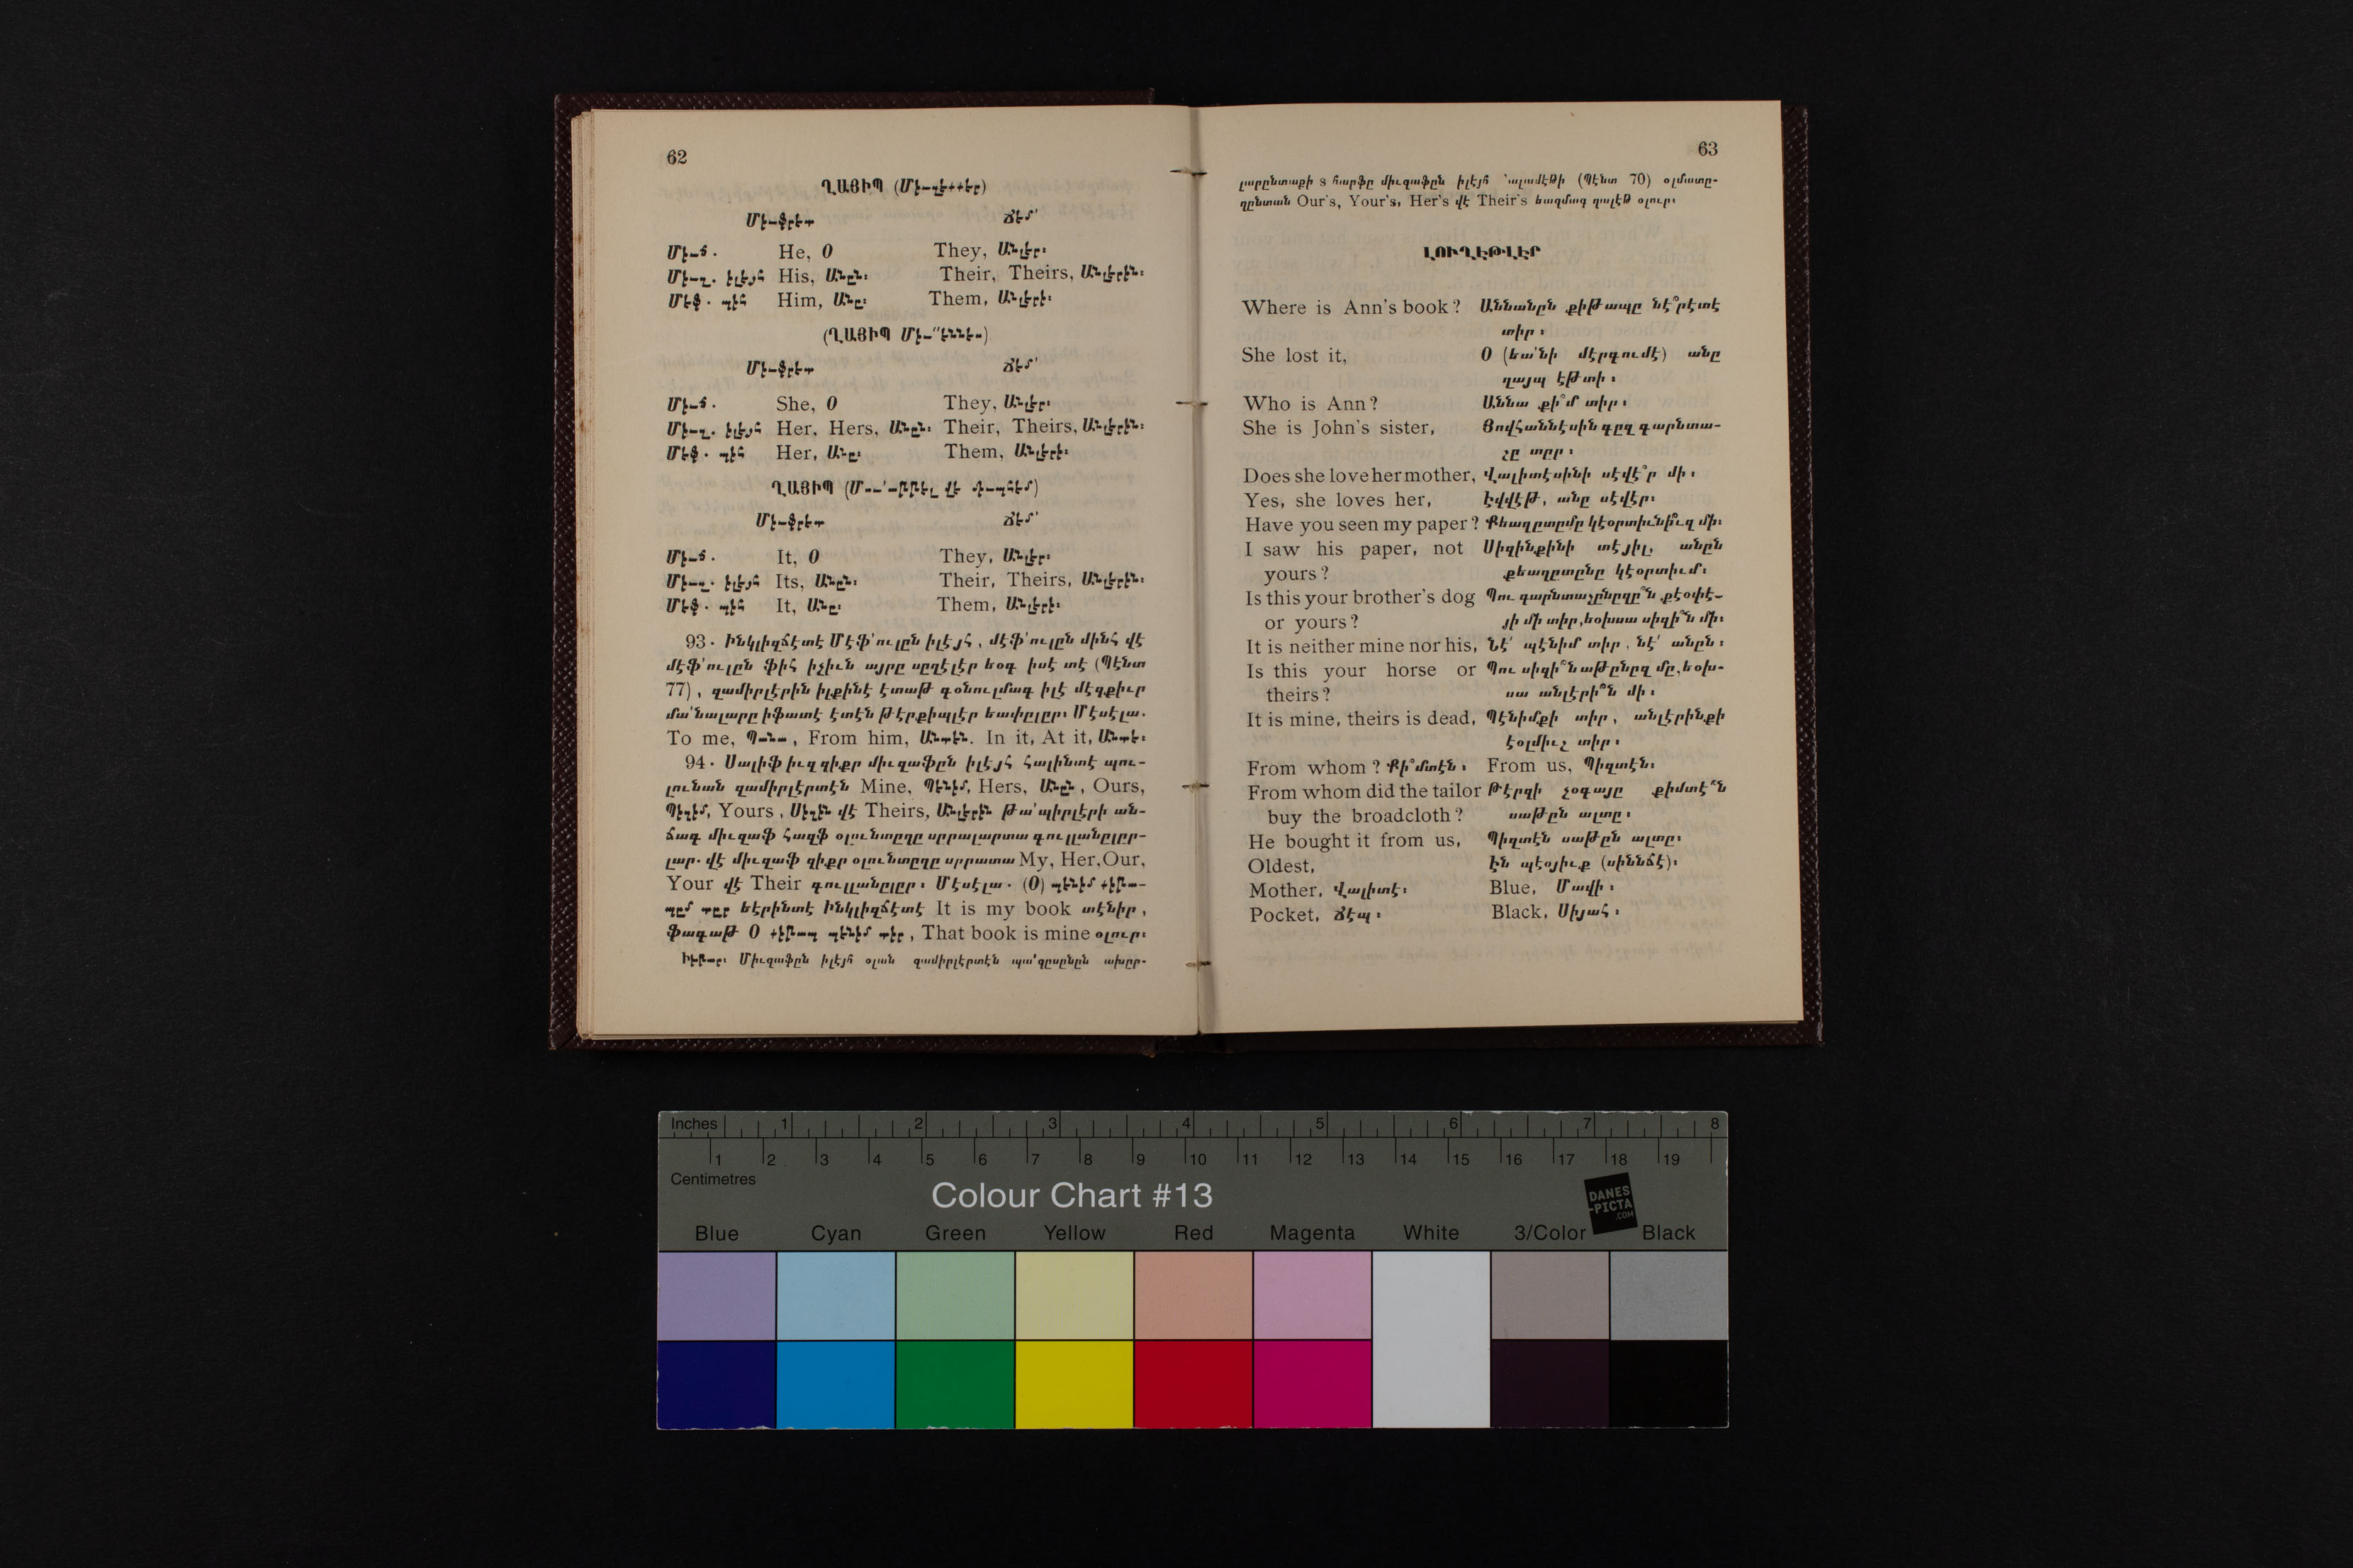 62
ՂԱՅԻՊ (Միւզէքքէր)
Միւֆրէտ Ճէմ՛
Միւճ. He, Օ They, Անլէր։
Միւզ. իլէյհ His, Անըն։ Their, Theirs, Անլէրին։
Մէֆ. պիհ Him, Անը։ Them, Անլէրի։
(ՂԱՅԻՊ Միւ՚՚էննէս)
Միւֆրէտ Ճէմ՛
Միւճ. She, Օ They, Անլէր։
Միւզ. իլէյհ Her, Hers, Անըն։ Their, Theirs, Անլէրին։
Մէֆ. պիհ Her, Անը։ Them, Անլէրի։
ՂԱՅԻՊ
Միւֆրէտ Ճէմ՛
Միւճ. It, Օ They, Անլէր։
Միւզ. իլէյհ Its, Անըն։ Their, Theirs, Անլէրին։
Մէֆ. պիհ It, Անը։ Them, Անլէրի։
93. Ինկլիզճէտէ Մէֆ՛ուլըն իլէյհ, մէֆ՛ուլըն մինհ վէ
մէֆ՛ուլըն ֆիհ իչիւն այրը սըղէլէր եօգ իսէ տէ (Պէնտ
77), զամիրլէրին իլքինէ էտաթ գօնուլմագ իլէ մէզքիւր
մա՛նալարը իֆատէ էտէն թէրքիպլէր եափըլըր։ Մէսէլա.
To me, Պանա, From him, Անտէն. In it, At it, Անտէ։
94. Սալիֆ իւզ զիքր միւզաֆըն իլէյհ հալինտէ պու-
լունան զամիրլէրտէն Mine, Պէնիմ, Hers, Անըն, Ours,
Պիզիմ, Yours, Սիզին վէ Theirs, Անլէրին թա՛պիրլէրի ան-
ճագ միւզաֆ հազֆ օլունտըղը սըրալարտա գուլլանըլըր-
լար. վէ միւզաֆ զիքր օլունտըղը սըրատա My, Her, Our,
Your վէ Their գուլլանըլըր։ Մէսէլա. (Օ) պէնիմ քիթա-
պըմ տըր եէրինտէ Ինկլիզճէտէ It is my book տէնիր,
ֆագաթ Օ քիթապ պէնիմ տիր, That book is mine օլուր։
Իխթար։ Միւզաֆըն իլէյհ օլան զամիրլէրտէն պա՛զըսընըն ախըր-
63
լարընտաքի s հարֆը միւզաֆըն իլէյհ ՛ալամէթի (Պէնտ 70) օլմատը-
ղընտան Our's, Your's, Her's վէ Their's եազմագ ղալէթ օլուր։
ԼՈՒՂԷԹԼԷՐ
Where is Ann's book? Աննանըն քիթապը նէ՞րէտէ
տիր։
She lost it, Օ (եա՛նի մէրգումէ) անը
ղայպ էթտի։
Who is Ann? Աննա քի՞մ տիր։
She is John's sister, Յովհաննէսին գըզ գարնտա-
շը տըր։
Does she love her mother, Վալիտէսինի սէվէ՞ր մի։
Yes, she loves her, Էվվէթ, անը սէվէր։
Have you seen my paper? Քեաղըտըմը կէօրտիւնի՞ւզ մի։
I saw his paper, not Սիզինքինի տէյիլ, անըն
yours? քեաղըտընը կէօրտիւմ։
Is this your brother's dog Պու գարնտաշընըզը՞ն քէօփէ-
or yours? յի մի տիր, եօխսա սիզի՞ն մի։
It is neither mine nor his, Նէ՛ պէնիմ տիր, նէ՛ անըն։
Is this your horse or Պու սիզի՞ն աթընըզ մը, եօխ-
theirs? սա անլէրի՞ն մի։
It is mine, theirs is dead, Պէնիմքի տիր, անլէրինքի
էօլմիւշ տիր։
From whom? Քի՞մտէն։ From us, Պիզտէն։
From whom did the tailor Թէրզի չօգայը քիմտէ՞ն
buy the broadcloth? սաթըն ալտը։
He bought it from us, Պիզտէն սաթըն ալտը։
Oldest, Էն պէօյիւք (սիննճէ)։
Mother, Վալիտէ։ Blue, Մավի։
Pocket, Ճէպ։ Black, Սիյահ։
Inches 1 2 3 4 5 6 7 8
1 2 3 4 5 6 7 8 9 10 11 12 13 14 15 16 17 18 19
Centimetres
Colour Chart #13
DANES
-PICTA
.COM
Blue Cyan Green Yellow Red Magenta White 3/Color Black